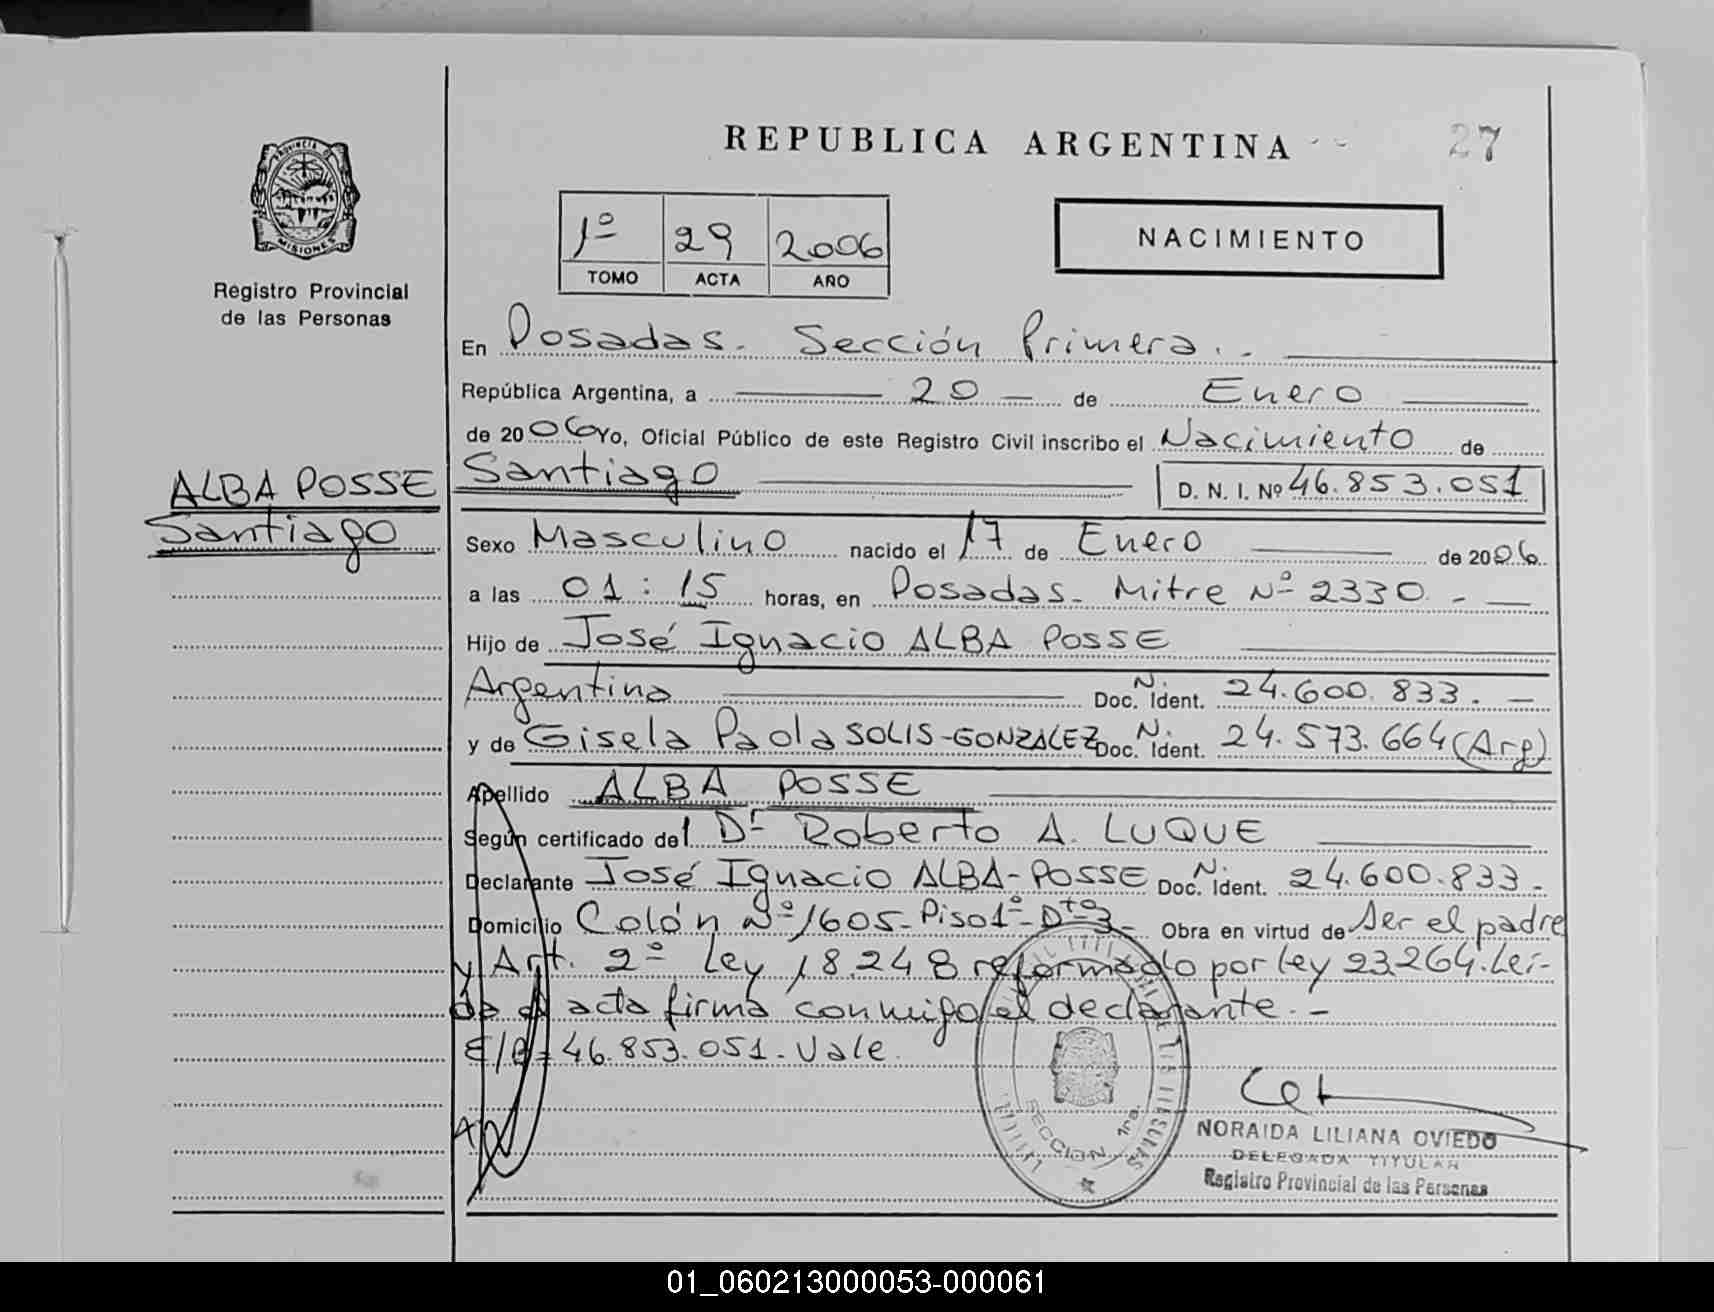 REPUBLICA ARGENTINA
27
PROVINCIA DE
MISIONES
Registro Provincial
de las Personas
1º 29 2006
TOMO ACTA AÑO
NACIMIENTO
En Posadas. Sección Primera.
República Argentina, a 20 de Enero
de 2006 Yo, Oficial Público de este Registro Civil inscribo el Nacimiento de
ALBA POSSE
Santiago
Santiago D. N. I. Nº 46.853.051
Sexo Masculino nacido el 17 de Enero de 2006
a las 01:15 horas, en Posadas. Mitre Nº 2330.-
Hijo de José Ignacio ALBA POSSE
Argentina N. Doc. Ident. 24.600.833.-
y de Gisela Paola SOLIS-GONZALEZ N. Doc. Ident. 24.573.664 (Arg)
Apellido ALBA POSSE
Según certificado del Dr Roberto A. LUQUE
Declarante José Ignacio ALBA-POSSE N. Doc. Ident. 24.600.833-
Domicilio Colón Nº 1605-Piso 1º-Dto 3- Obra en virtud de Ser el padre
y Art. 2º Ley 18.248 reformado por ley 23264. Lei-
da el acta firma conmigo el declarante.-
E/B= 46.853.051. Vale.
SECCION 1ra.
NORAIDA LILIANA OVIEDO
DELEGADA TITULAR
Registro Provincial de las Personas
01_060213000053-000061